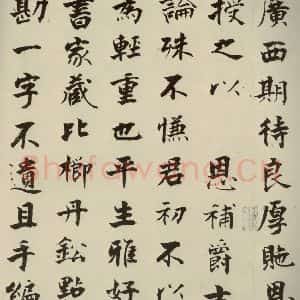 廣西期待良厚貤恩
授之以 恩補爵
論殊不慊君初不以
為輕重也平生雅好
書家藏比櫛丹鉛點
勘一字不遺且手編
Shufawang.Cn